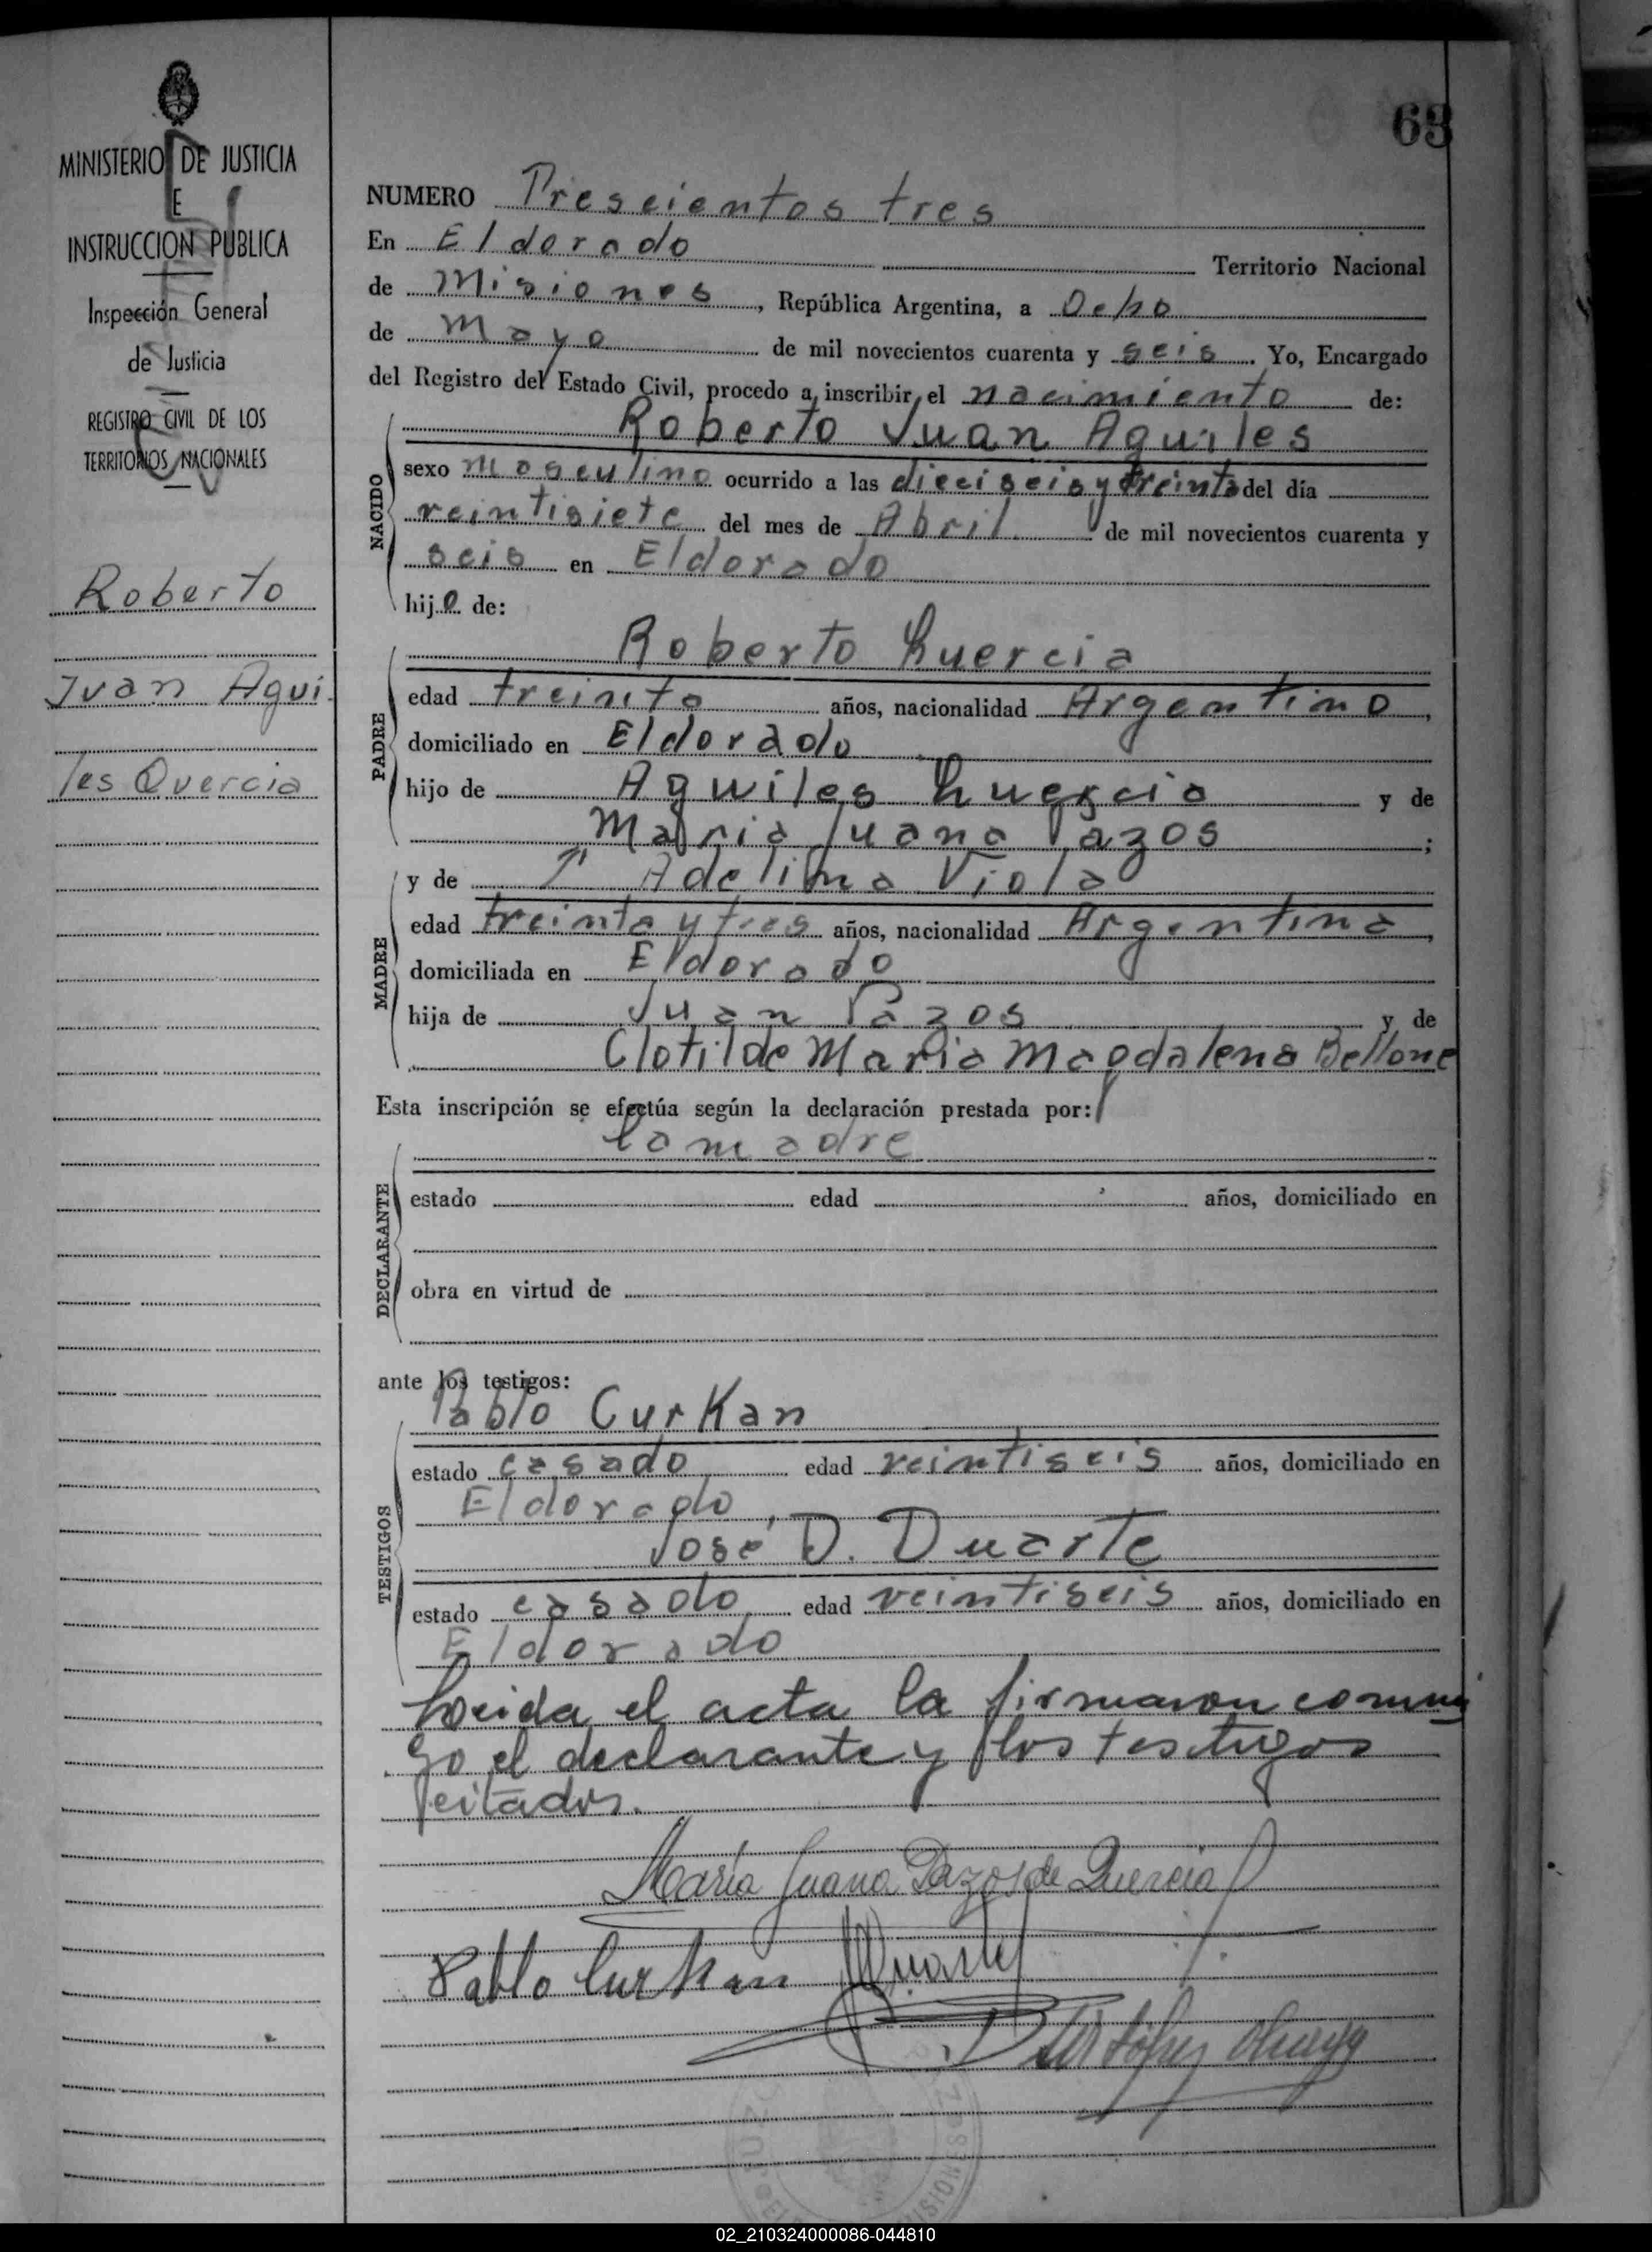 63
MINISTERIO DE JUSTICIA
E
INSTRUCCION PUBLICA
Inspección General
de Justicia
REGISTRO CIVIL DE LOS
TERRITORIOS NACIONALES
Roberto
Juan Aqui-
les Quercia
NUMERO Trescientos tres
En Eldorado Territorio Nacional
de Misiones, República Argentina, a Ocho
de Mayo de mil novecientos cuarenta y seis. Yo, Encargado
del Registro del Estado Civil, procedo a inscribir el nacimiento de:
Roberto Juan Aquiles
NACIDO
sexo masculino ocurrido a las dieciseis y treinta del día
veintisiete del mes de Abril de mil novecientos cuarenta y
seis en Eldorado
hijo de:
Roberto Quercia
PADRE
edad treinta años, nacionalidad Argentino,
domiciliado en Eldorado
hijo de Aquiles Quercia y de
Maria Juana Pazos;
y de Adelina Viola
MADRE
edad treinta y tres años, nacionalidad Argentina,
domiciliada en Eldorado
hija de Juan Pazos y de
Clotilde Maria Magdalena Bellone
Esta inscripción se efectúa según la declaración prestada por:
la madre
DECLARANTE
estado edad años, domiciliado en
obra en virtud de
ante los testigos:
Pablo Curkan
TESTIGOS
estado casado edad veintiseis años, domiciliado en
Eldorado,
José D. Duarte
estado casado edad veintiseis años, domiciliado en
Eldorado
Leida el acta la firmaron conmi
go el declarante y los testigos
citados.
María Juana Pazos de Quercia
Pablo Curkan Duarte
02_210324000086-044810